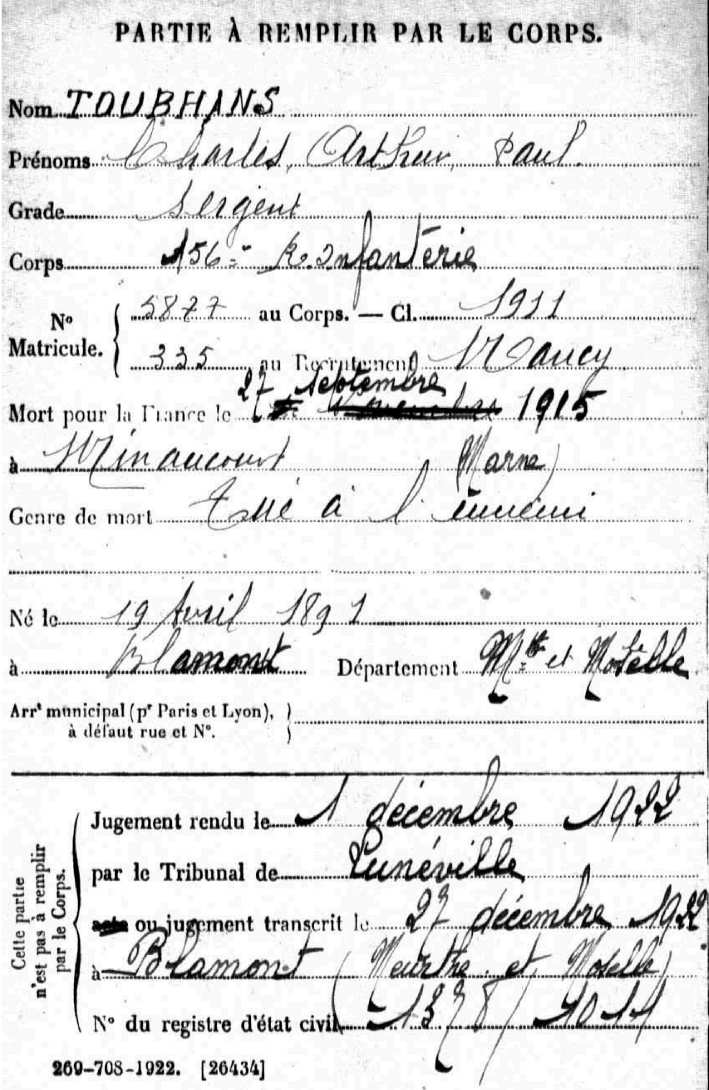 PARTIE À REMPLIR PAR LE CORPS.
Nom TOUBHANS
Prénoms Charles, Arthur, Paul.
Grade Sergent
Corps 156e R. Infanterie
No Matricule. { 5877 au Corps. — Cl. 1911
335 au Recrutement Nancy
27 Septembre
Mort pour la France le 1915
à Minaucourt (Marne)
Genre de mort Tué à l'ennemi
Né le 19 Avril 1891
à Blamont Département Mthe et Moselle
Arrt municipal (pr Paris et Lyon), }
à défaut rue et No.
Cette partie
n'est pas à remplir
par le Corps.
Jugement rendu le 1 décembre 1922
par le Tribunal de Lunéville
acte ou jugement transcrit le 27 décembre 1922
à Blamont (Meurthe et Moselle)
No du registre d'état civil
269-708-1922. [26434]